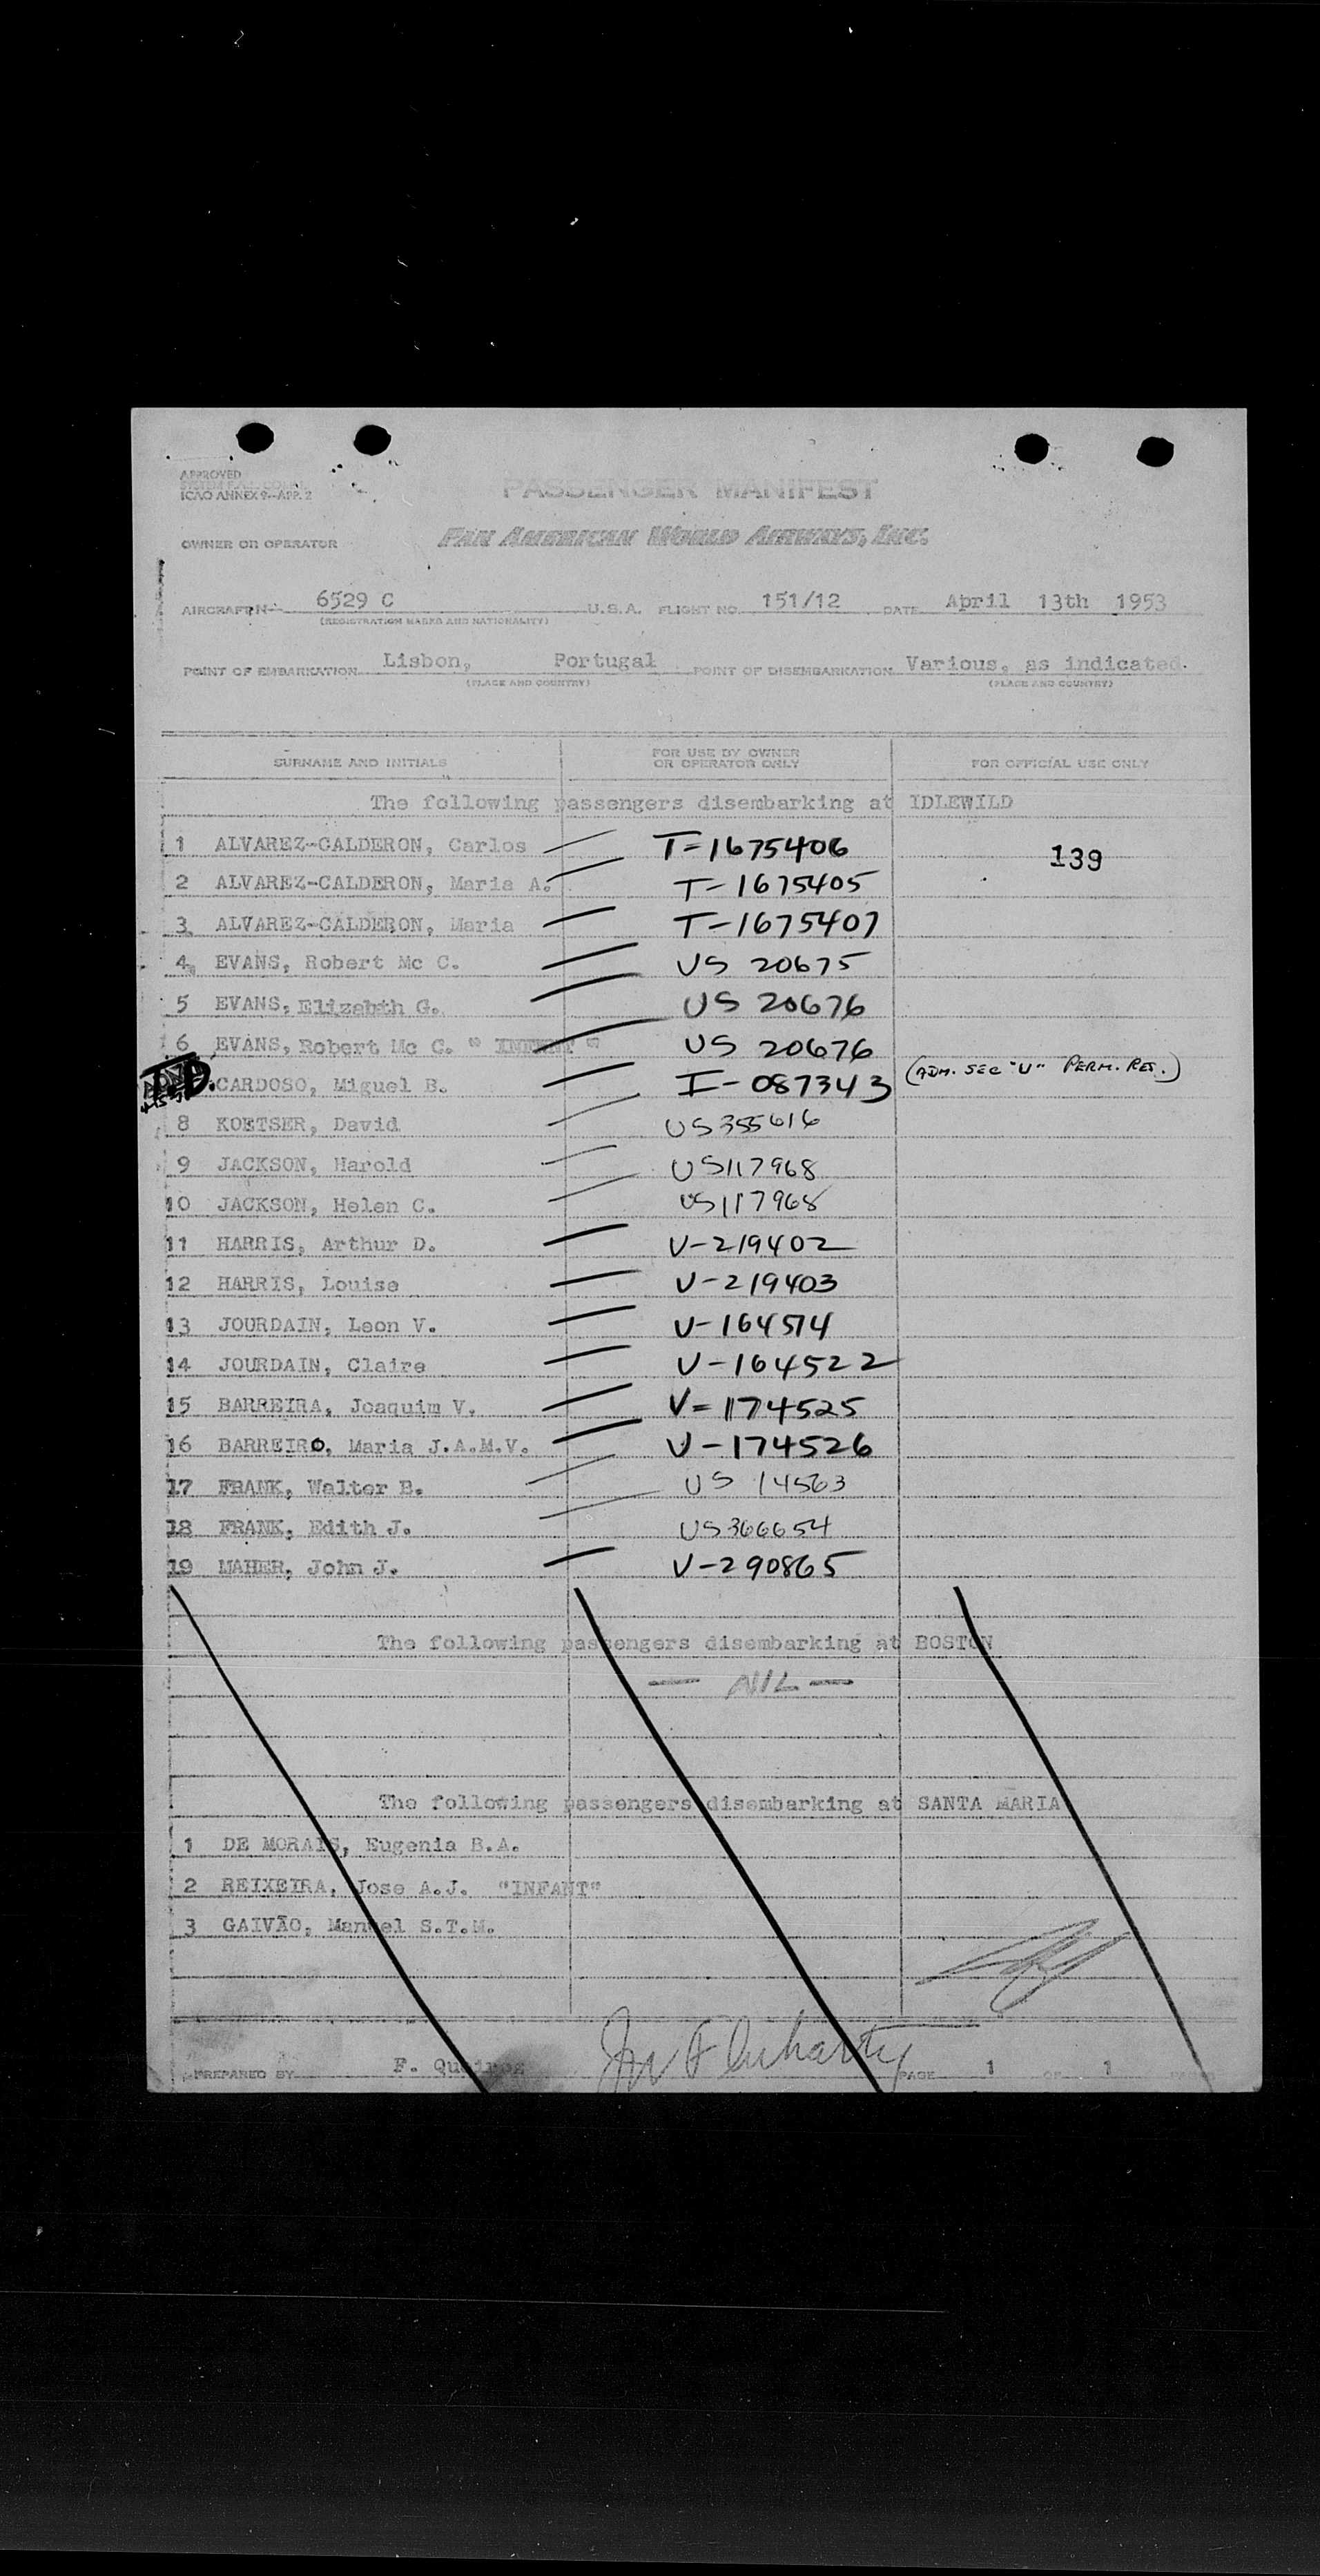 APPROVED
ICAO ANNEX 9—APP. 2
PASSENGER MANIFEST
OWNER OR OPERATOR PAN AMERICAN WORLD AIRWAYS, INC.
AIRCRAFT N- 6529 C U.S.A. FLIGHT NO. 151/12 DATE April 13th 1953
(REGISTRATION MARKS AND NATIONALITY)
POINT OF EMBARKATION Lisbon, Portugal POINT OF DISEMBARKATION Various, as indicated.
(PLACE AND COUNTRY) (PLACE AND COUNTRY)
SURNAME AND INITIALS FOR USE BY OWNER OR OPERATOR ONLY FOR OFFICIAL USE ONLY
The following passengers disembarking at IDLEWILD
1 ALVAREZ-CALDERON, Carlos T-1675406 139
2 ALVAREZ-CALDERON, Maria A. T-1675405
3 ALVAREZ-CALDERON, Maria T-1675407
4 EVANS, Robert Mc C. US 20675
5 EVANS, Elizabth G. US 20676
6 EVANS, Robert Mc C. "INFANT" US 20676
T.D. CARDOSO, Miguel B. I-087343 (ADM. SEC "U" PERM. RES.)
8 KOETSER, David US 355616
9 JACKSON, Harold US117968
10 JACKSON, Helen C. US117968
11 HARRIS, Arthur D. V-219402
12 HARRIS, Louise V-219403
13 JOURDAIN, Leon V. V-164514
14 JOURDAIN, Claire V-164522
15 BARREIRA, Joaquim V. V=174525
16 BARREIRO, Maria J.A.M.V. V-174526
17 FRANK, Walter B. US 14563
18 FRANK, Edith J. US366654
19 MAHER, John J. V-290865
The following passengers disembarking at BOSTON
— NIL —
The following passengers disembarking at SANTA MARIA
1 DE MORAIS, Eugenia B.A.
2 REIXEIRA, Jose A.J. "INFANT"
3 GAIVÃO, Manuel S.T.M.
PREPARED BY F. Queiroz PAGE 1 OF 1